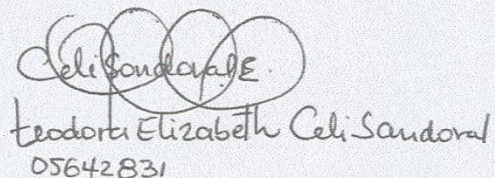 Celi Sandoval E.
teodora Elizabeth Celi Sandoval
05642831